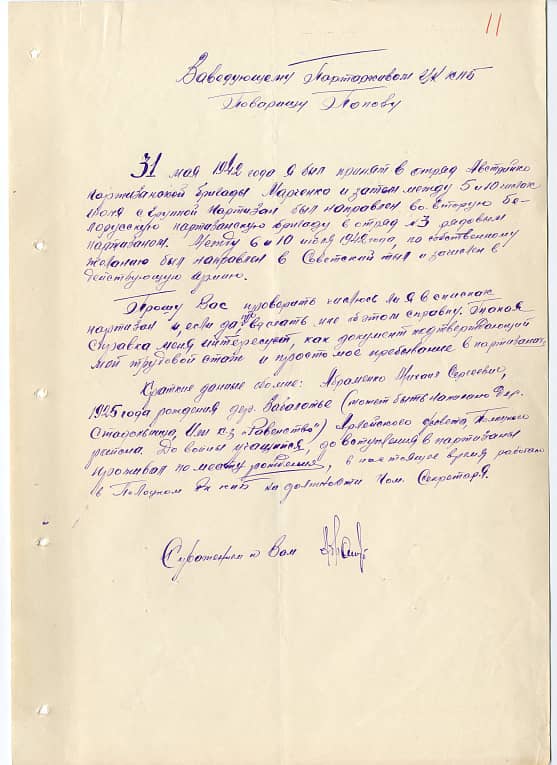 11
Заведующему Партархивом ЦК КПБ
Товарищу Попову
31 мая 1942 года я был принят в отряд Австрийко
партизанской бригады Марченко и затем между 5 и 10 числами
июня с группой партизан был направлен во Вторую бе-
лорусскую партизанскую бригаду в отряд №3 рядовым
партизаном. Между 6 и 10 июля 1942 года, по собственному
желанию был направлен в Советский тыл и записан в
действующую армию.
Прошу Вас проверить числюсь ли я в списках
партизан и, если да, то выслать мне об этом справку. Такая
справка меня интересует, как документ подтверждающий
мой трудовой стаж и просто мое пребывание в партизанах.
Краткие данные обо мне: Абраменко Михаил Сергеевич,
1925 года рождения дер. Заболотье (может быть написано дер.
или к-з "Равенство") Полоцкого
района. До войны учащийся, до вступления в партизаны
проживал по месту рождения, в настоящее время работаю
в Полоцком РК КПБ на должности пом. Секретаря.
С уважением к Вам